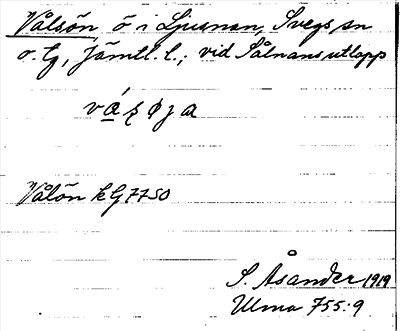 Vålsön, ö i Ljusnan, Svegs sn
o. tg, Jämtl. l.; vid Sålnans utlopp
Vålön kG7750
S. Åsander 1919
Ulma 755:9